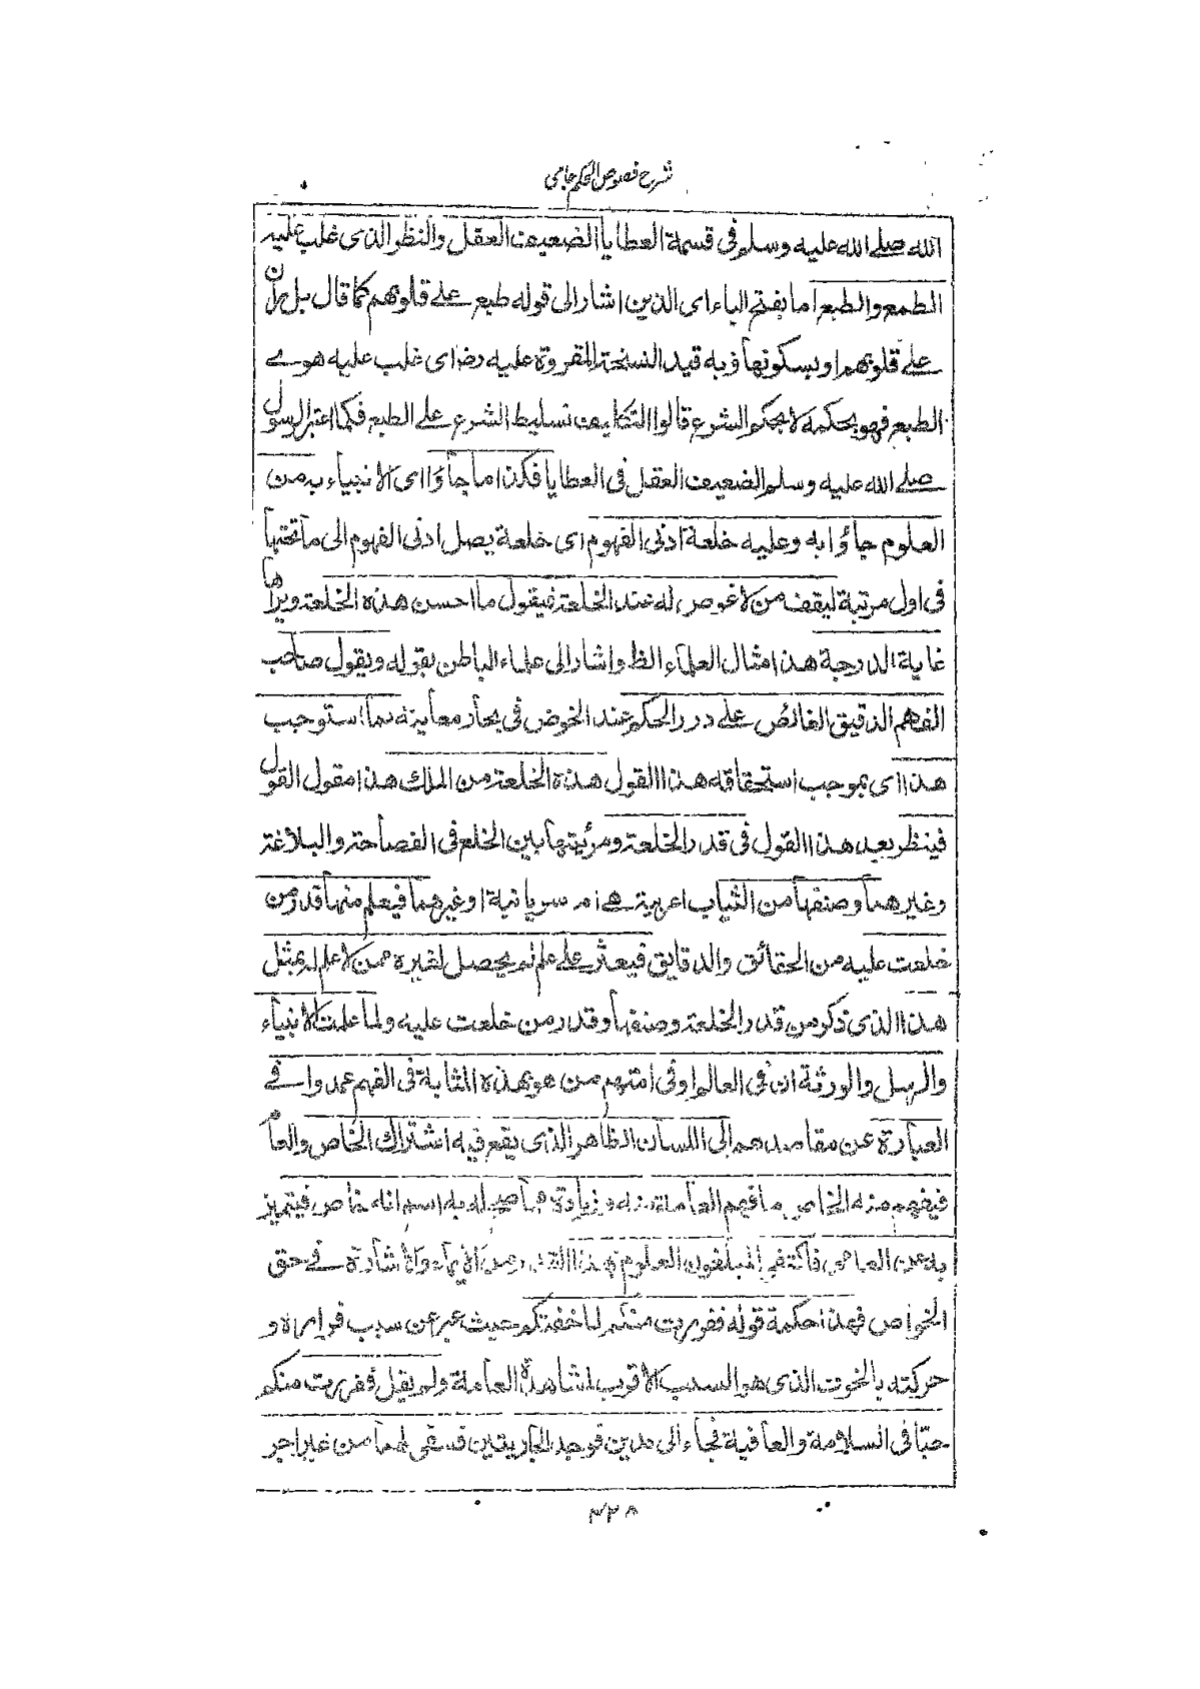 شرح فصوص الحكم جامی
الله صلے الله عليه وسلم فی قسمة العطايا الضعيف العقل والنظر الذی غلب عليه
الطمع والطبع اما بفتح الباء ای الذين اشار الی قوله طبع علے قلوبهم كما قال بل ران
علے قلوبهم او بسكونها وبه قيد النسخة المقروة عليه رض ای غلب عليه هوے
الطبع فهو بحكمه لا بحكم الشرع قالوا التكليف تسليط الشرع علے الطبع فكما اعتبر الرسول
صلے الله عليه وسلم الضعيف العقل فی العطايا فكذا ما جاؤا ای الانبياء به من
العلوم جاؤا به وعليه خلعة ادنی الفهوم ای خلعة يصل ادنی الفهوم الی ما تحتها
فی اول مرتبة ليقف من لا غوص له عند الخلعة فيقول ما احسن هذه الخلعة ويراها
غاية الدرجة هذا مثال العلماء الظ واشار الی علماء الباطن بقوله ويقول صاحب
الفهم الدقيق الغائص علے درر الحكم عند الخوض فی بحار معانيه بما استوجب
هذا ای بموجب استحقاقه هذا القول هذه الخلعة من الملك هذا مقول القول
فينظر بعد هذا القول فی قدر الخلعة ومرتبتها بين الخلع فی الفصاحة والبلاغة
وغيرهما وصنفها من الثياب اعربية هے ام سريانية او غيرهما فيعلم منها قدر من
خلعت عليه من الحقائق والدقايق فيعثر علے علم لم يحصل لغيره ممن لا علم له بمثل
هذا الذی ذكر من قدر الخلعة وصنفها وقدر من خلعت عليه ولما علمت الانبياء
والرسل والورثة ان فی العالم او فی امتهم من هو بهذه المثابة فی الفهم عمدوا فے
العبارة عن مقاصدهم الی اللسان الظاهر الذی يقع فيه اشتراك الخاص والعام
فيفهم منه الخاص ما فهم العامة منه وزيادة مما صح له به اسم انه خاص فيتميز
به عن العامی فاكتفی المبلغون العلوم بهذا القدر من الايماء والاشارة فے حق
الخواص فهذا حكمة قوله ففررت منكم لما خفتكم حيث عبر عن سبب فراره و
حركته بالخوف الذی هو السبب الاقرب لمشاهدة العامة ولم يقل ففررت منكم
حبا فی السلامة والعافية فجاء الی مدين فوجد الجاريتين فسقی لهما من غير اجر
۴۲۸